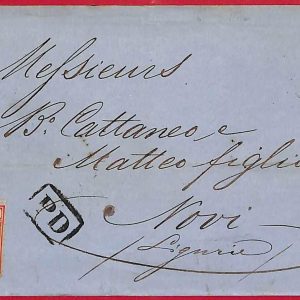 Messieurs
B. Cattaneo e
Matteo figlio
Novi
(Ligurie)
PD